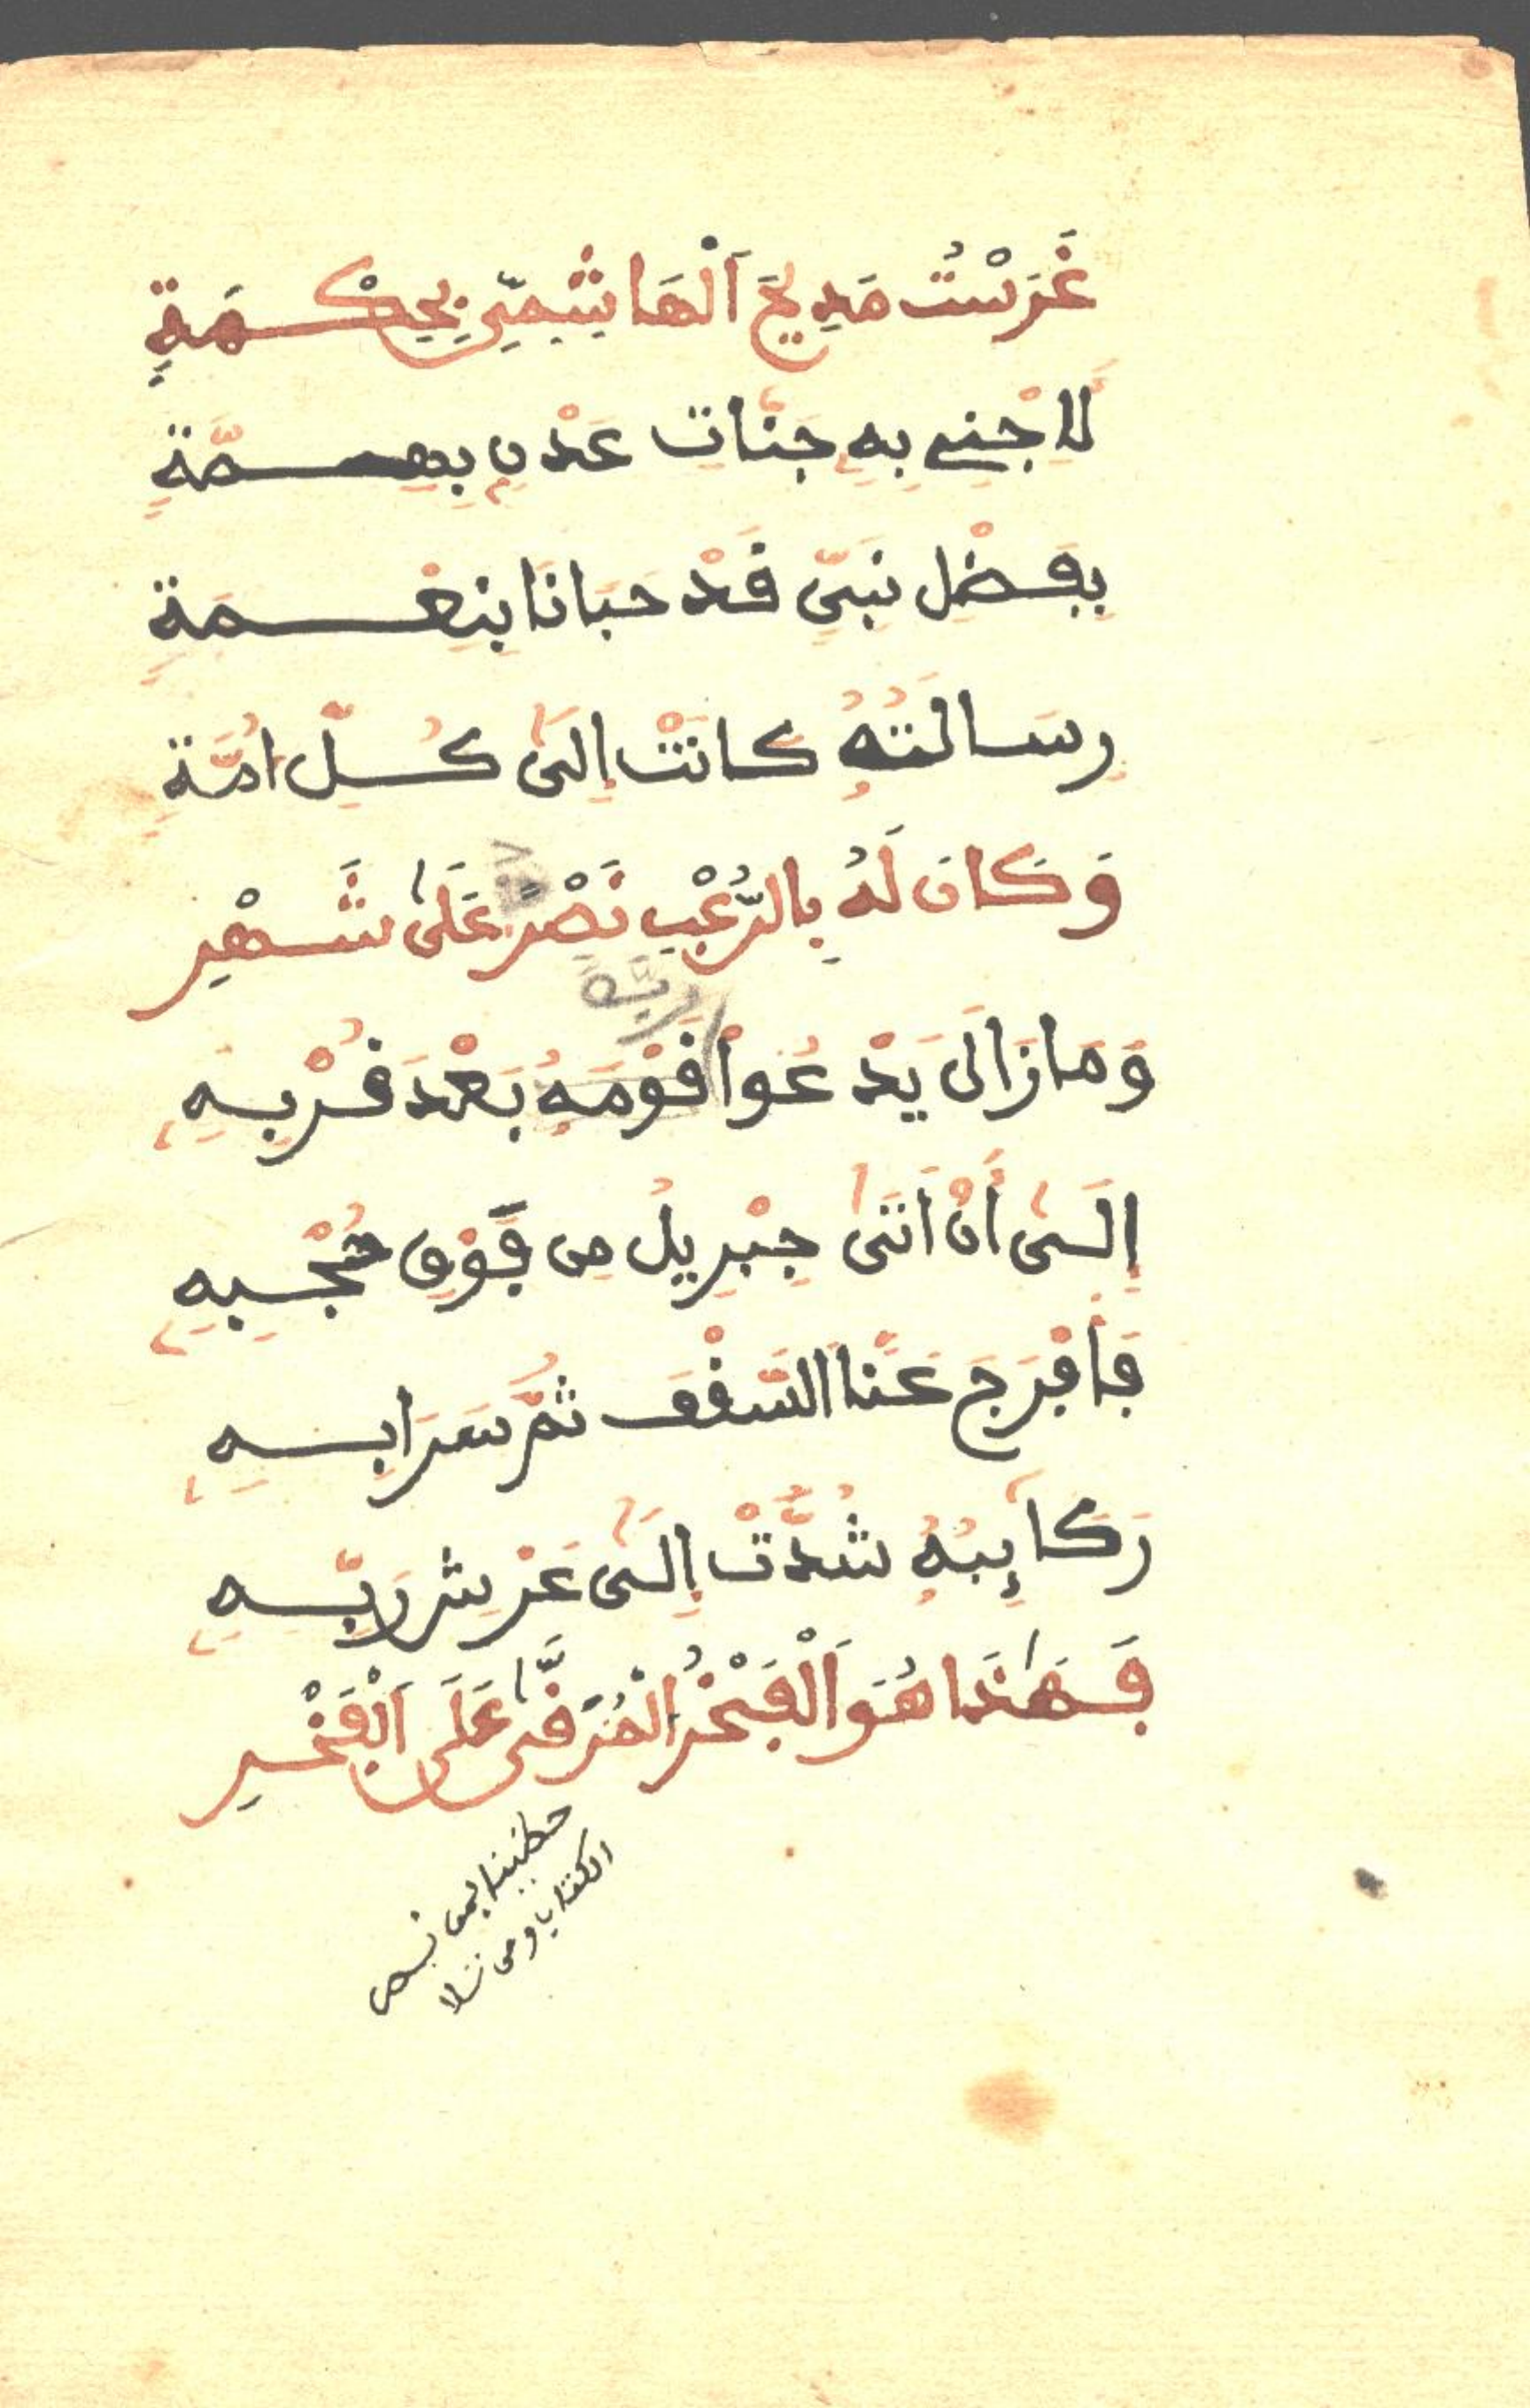 غَرَسْتُ مَدِيحَ اَلْهَاشِمِيِّ بِحِكْمَةٍ
لِلأَجْنِي بِهِ جَنَّاتِ عَدْنٍ بِهِمَّةٍ
بِفَضْلِ نَبِيٍّ قَدْ حَبَانَا بِنِعْمَةٍ
رِسَالَتُهُ كَانَتْ إِلَىٰ كُلِّ اُمَّةٍ
وَكَانَ لَهُ بِالرُّعْبِ نَصْرٌ عَلَىٰ شَهْرِ
وَمَا زَالَ يَدْعُوا قَوْمَهُ بَعْدَ قُرْبِهِ
ربّه
إِلَىٰ أَنْ أَتَىٰ جِبْرِيلُ مِن فَوْقِ حُجْبِهِ
فَأُفْرِجَ عَنَّا السَّقْفَ ثُمَّ سَرَا بِهِ
رَكَايِبُهُ شُدَّتْ إِلَىٰ عَرْشِ رَبِّهِ
فَهَٰذَا هُوَ اَلْفَخْرُ الْمُرَقَّىٰ عَلَى اَلْفَخْرِ